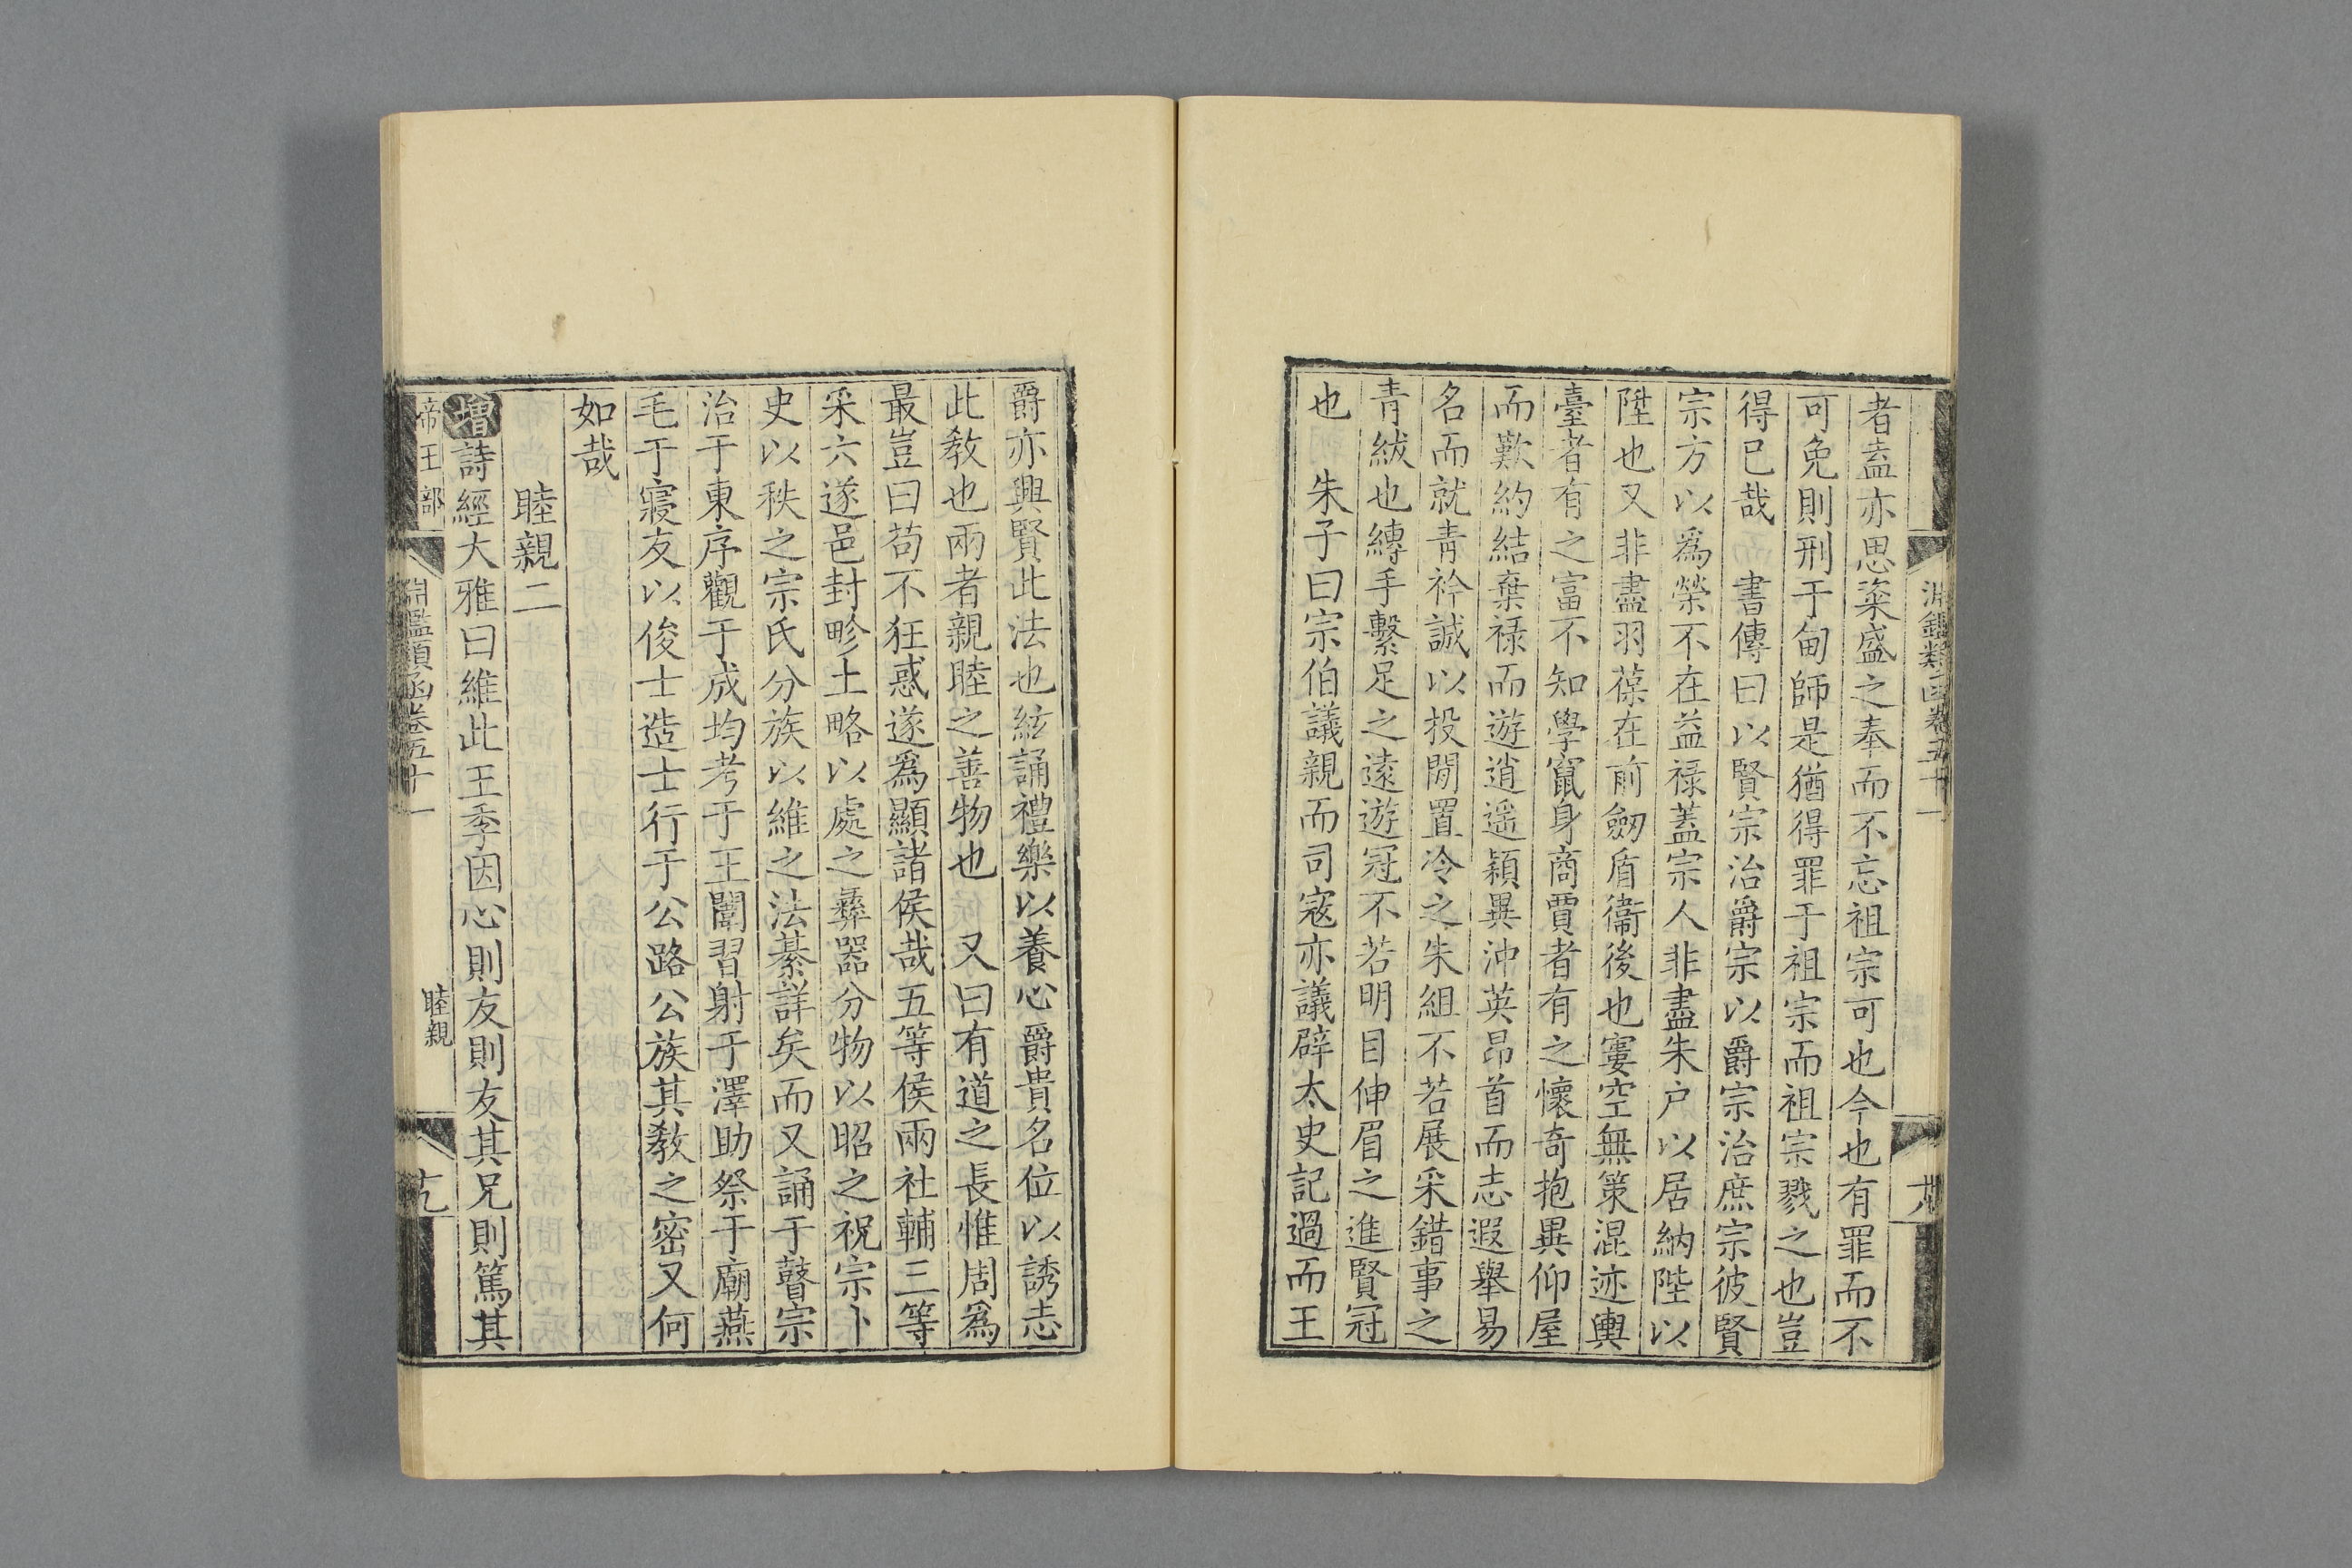 淵鑑類函卷五十一
者盍亦思粢盛之奉而不忘祖宗可也今也有罪而不
可免則刑于甸師是猶得罪于祖宗而祖宗戮之也豈
得已哉 書傳曰以賢宗治爵宗以爵宗治庶宗彼賢
宗方以爲榮不在益祿蓋宗人非盡朱户以居納陛以
陞也又非盡羽葆在前劒盾衞後也窶空無策混迹輿
臺者有之富不知學竄身商賈者有之懷奇抱異仰屋
而歎約結棄祿而遊逍遥穎異沖英昂首而志遐舉易
名而就青衿誠以投閒置冷之朱組不若展采錯事之
青紱也縳手繫足之遠遊冠不若明目伸眉之進賢冠
也 朱子曰宗伯議親而司寇亦議辟太史記過而王
爵亦興賢此法也絃誦禮樂以養心爵貴名位以誘志
此教也兩者親睦之善物也 又曰有道之長惟周爲
最豈曰苟不狂惑遂爲顯諸侯哉五等侯兩社輔三等
采六遂邑封畛土略以處之彝器分物以昭之祝宗卜
史以秩之宗氏分族以維之法綦詳矣而又誦于瞽宗
治于東序觀于成均考于王闈習射于澤助祭于廟燕
毛于寢友以俊士造士行于公路公族其教之密又何
如哉
睦親二
增詩經大雅曰維此王季因心則友則友其兄則篤其
帝王部 淵鑑類函卷五十一 睦親